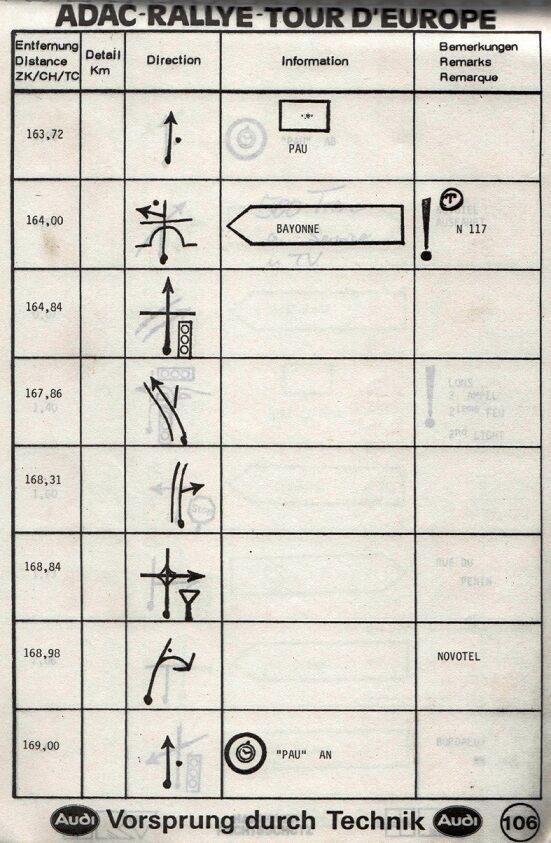 ADAC-RALLYE-TOUR D'EUROPE
Entfernung Detail Direction Information Bemerkungen
Distance Km Remarks
ZK/CH/TC Remarque
163,72
PAU
164,00 BAYONNE T N 117
164,84
167,86
168,31
168,84
168,98 NOVOTEL
169,00 "PAU" AN
Audi Vorsprung durch Technik Audi 106